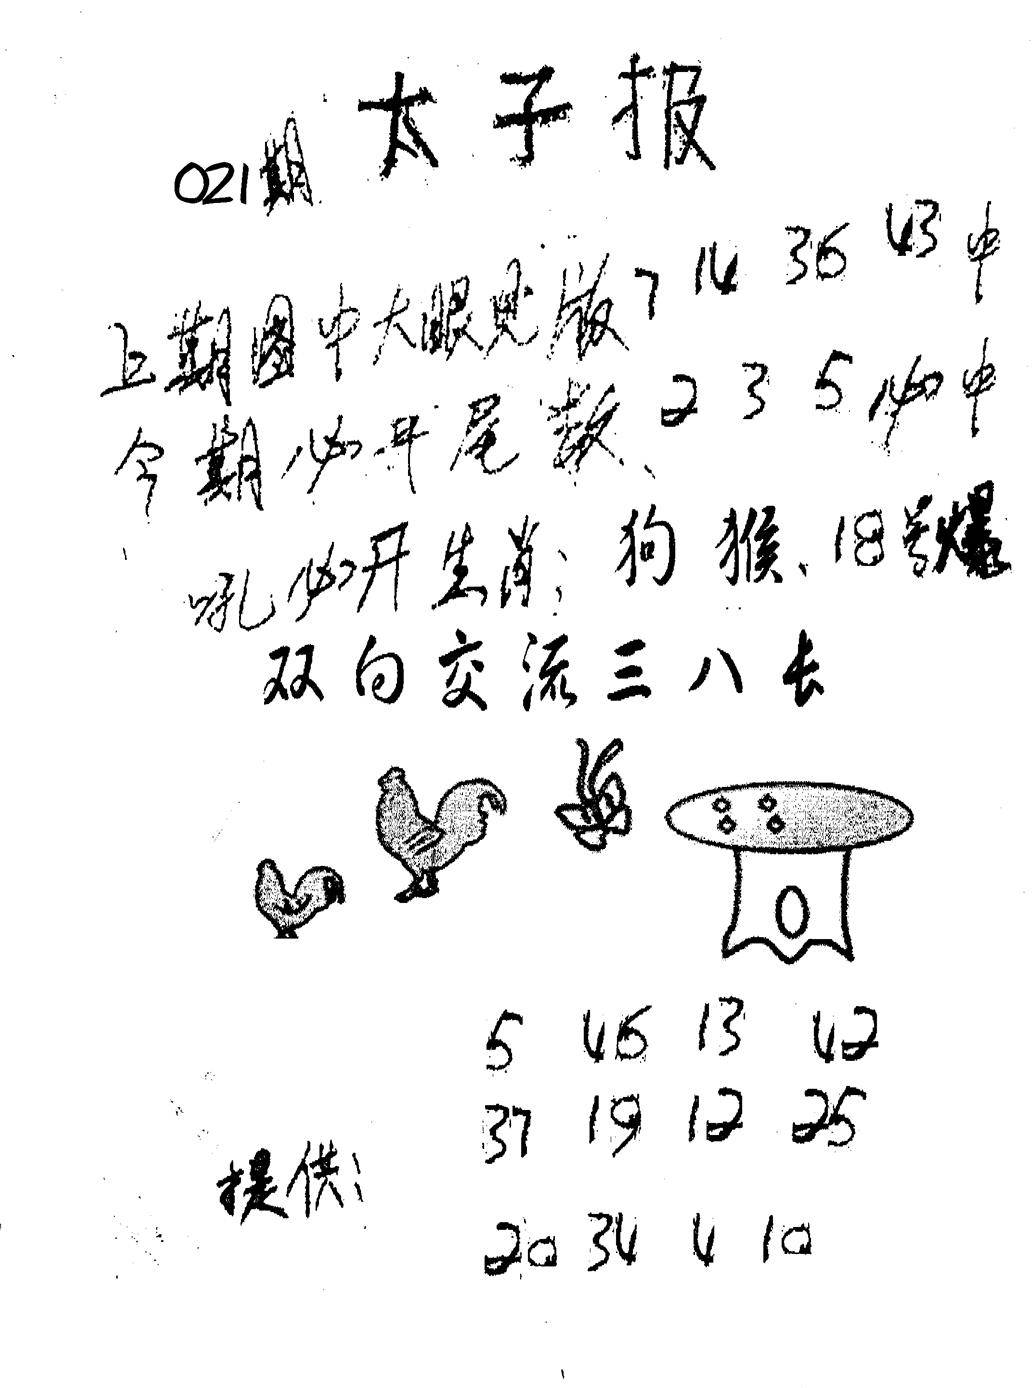 太子报
021期
上期图中大眼见版7 14 36 43中
今期必开尾数、2 3 5必中
吼必开生肖：狗 猴、18号爆
双向交流三八长
5 46 13 42
37 19 12 25
提供：
20 34 4 10